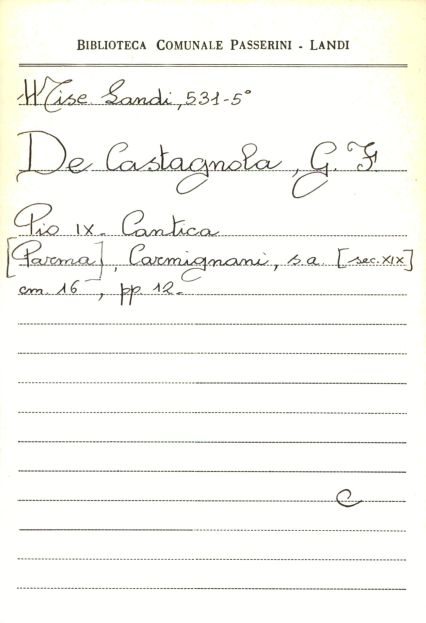 BIBLIOTECA COMUNALE PASSERINI - LANDI
Misc. Landi, 531-5°
De Castagnola, G. F.
Pio IX. Cantica
[Parma], Carmignani, s.a. [sec. XIX]
cm. 16, pp. 12.
C